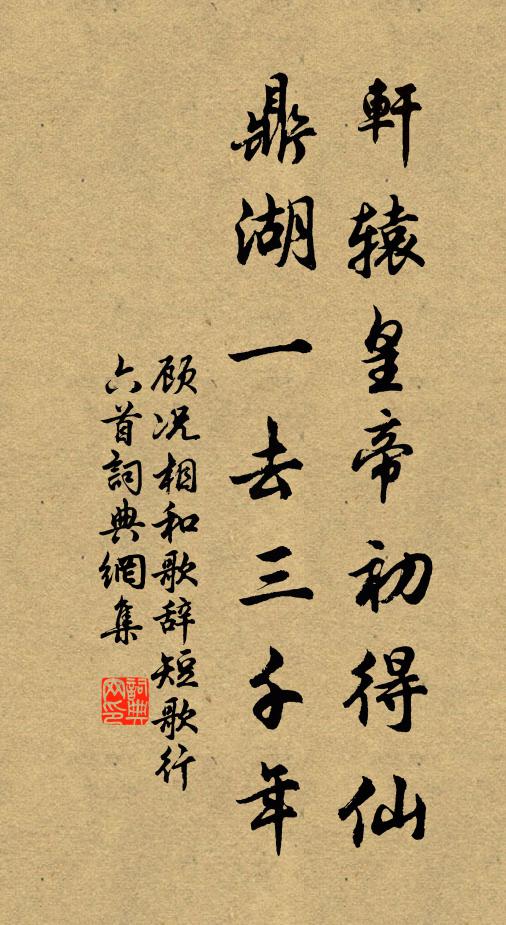 軒辕皇帝初得仙
鼎湖一去三千年
顾况相和歌辞短歌行
六首詞典網集
詞典网印